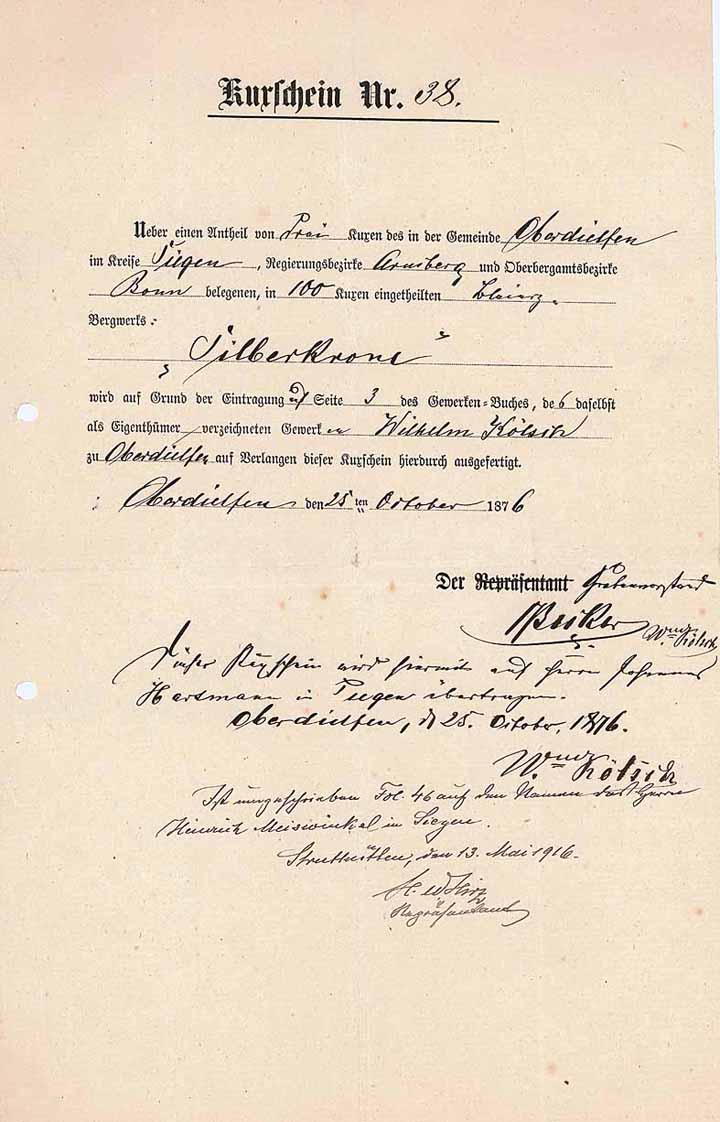 Kuxschein Nr. 38.
Ueber einen Antheil von Drei Kuxen des in der Gemeinde Oberdielfen
im Kreise Siegen, Regierungsbezirke Arnsberg und Oberbergamtsbezirke
Bonn belegenen, in 100 Kuxen eingetheilten Bleierz-
Bergwerks:
„Silberkrone“
wird auf Grund der Eintragung auf Seite 3 des Gewerken-Buches, de6 daselbst
als Eigenthümer verzeichneten Gewerken Wilhelm Kölsch
zu Oberdielfen auf Verlangen dieser Kuxschein hierdurch ausgefertigt.
Oberdielfen den 25ten October 1876
Der Repräsentant Grubenvorstand
Becker Wm Kölsch
Dieser Kuxschein wird hiermit auf Herrn Johannes
Hartmann in Siegen übertragen.
Oberdielfen, d 25. October, 1876.
Wm Kölsch
Ist umgeschrieben Fol. 46 auf den Namen des Herrn
Heinrich Meiswinkel in Siegen.
Struthütten, den 13. Mai 1916.
Repräsentant